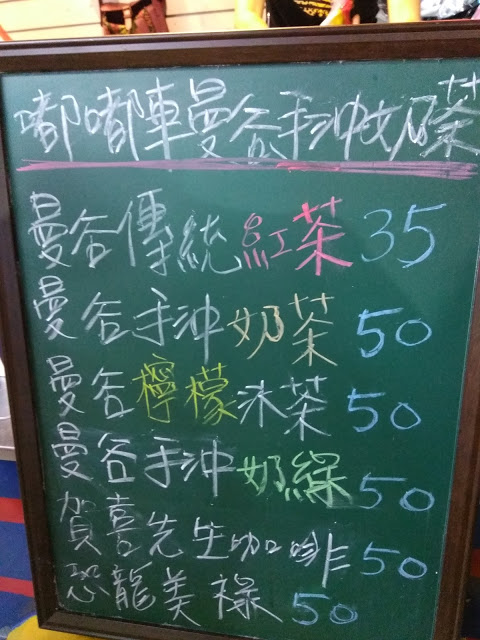 嘟嘟車曼谷手沖奶茶
曼谷傳統紅茶35
曼谷手沖奶茶50
曼谷檸檬冰茶50
曼谷手沖奶綠50
賀喜先生咖啡50
恐龍美祿50